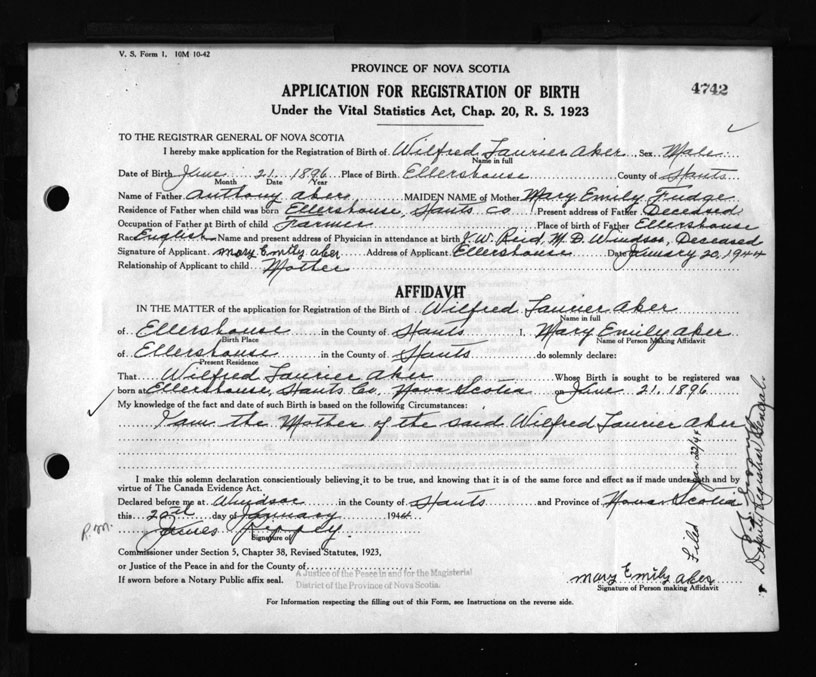 V. S. Form 1. 10M 10-42
PROVINCE OF NOVA SCOTIA
APPLICATION FOR REGISTRATION OF BIRTH
4742
Under the Vital Statistics Act, Chap. 20, R. S. 1923
TO THE REGISTRAR GENERAL OF NOVA SCOTIA
I hereby make application for the Registration of Birth of Wilfred Laurier Aker Sex Male
Name in full
Date of Birth June 21 1896 Place of Birth Ellershouse County of Hants
Month Date Year
Name of Father Anthony Aker MAIDEN NAME of Mother Mary Emily Fudge
Residence of Father when child was born Ellershouse, Hants Co Present address of Father Deceased
Occupation of Father at Birth of child Farmer Place of birth of Father Ellershouse
Race English Name and present address of Physician in attendance at birth J. W. Reid, M. D. Windsor, Deceased
Signature of Applicant Mary Emily Aker Address of Applicant Ellershouse Date January 20, 1944
Relationship of Applicant to child Mother
AFFIDAVIT
IN THE MATTER of the application for Registration of the Birth of Wilfred Laurier Aker
Name in full
of Ellershouse in the County of Hants I, Mary Emily Aker
Birth Place Name of Person Making Affidavit
of Ellershouse in the County of Hants do solemnly declare:
Present Residence
That Wilfred Laurier Aker Whose Birth is sought to be registered was
born at Ellershouse, Hants Co, Nova Scotia on June 21, 1896
My knowledge of the fact and date of such Birth is based on the following Circumstances:
I am the Mother of the said Wilfred Laurier Aker
I make this solemn declaration conscientiously believing it to be true, and knowing that it is of the same force and effect as if made under oath and by
virtue of The Canada Evidence Act.
Declared before me at Windsor in the County of Hants and Province of Nova Scotia
this 20th day of January 1944
James
Signature of
Commissioner under Section 5, Chapter 38, Revised Statutes, 1923,
or Justice of the Peace in and for the County of
A Justice of the Peace in and for the Magisterial
If sworn before a Notary Public affix seal.
District of the Province of Nova Scotia.
Mary Emily Aker
Signature of Person making Affidavit
For Information respecting the filling out of this Form, see Instructions on the reverse side.
Filed Jan 22/44
Deputy Registrar General.